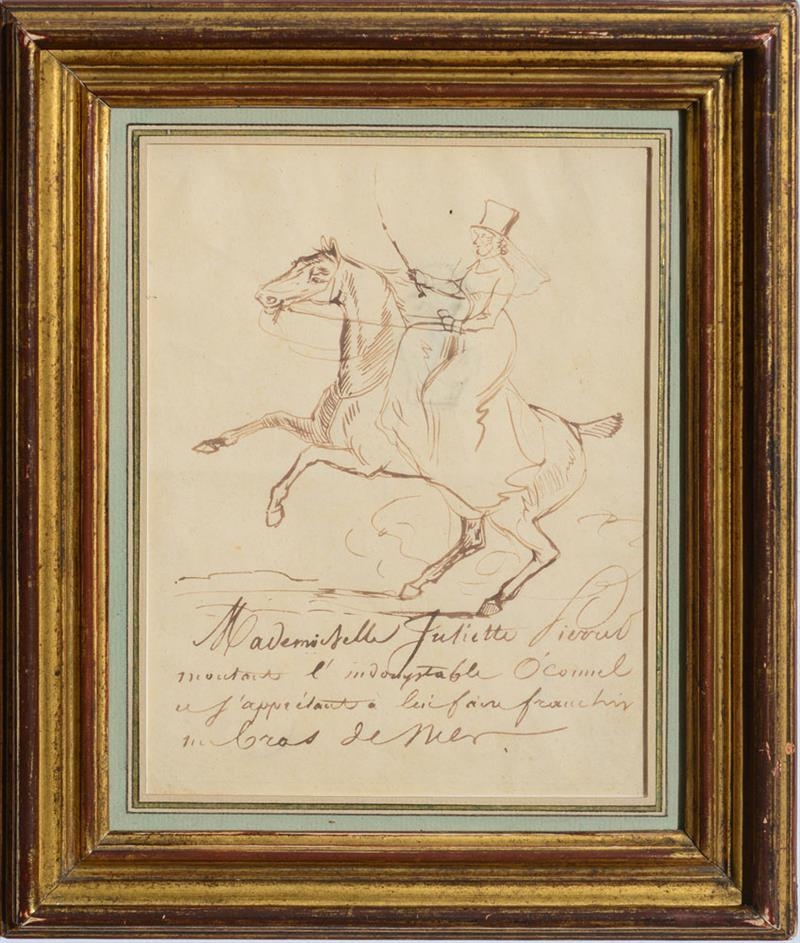 Mademoiselle Juliette
montant l'indomptable O'connel
et s'apprêtant à lui faire franchir
un bras de Mer.